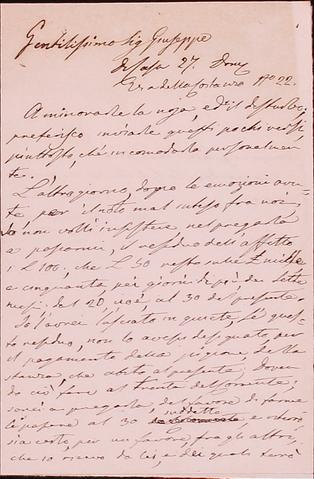 Gentilissimo Sig Giuseppe
di Casa 27.
Via della 22.
A minorarle la noja, e il disturbo,
preferisco inviarle questi pochi versi
piuttosto, che incomodarla personalmen-
te.
L'altro giorno, dopo le emozioni avu-
te, per il noto mal inteso fra noi,
Io non volli insistere nel pregarla
a passarmi, il residuo dell'affitto
che £ 50
e cinquanta per giorni di più, dei sette
mesi. dal 20 al 30 del presente.
Io l'avrei lasciato in quiete, se que-
sto residuo, non lo avessi designato per
il pagamento della pigione della
stanza, che abito al presente; doven-
do ciò fare al trenta del corrente,
sono a pregarla del favore di farme
le passare al 30 suddetto, e
sia certo, per un favore, fra gli altri,
che io riservo da lei, e dei quali terrò